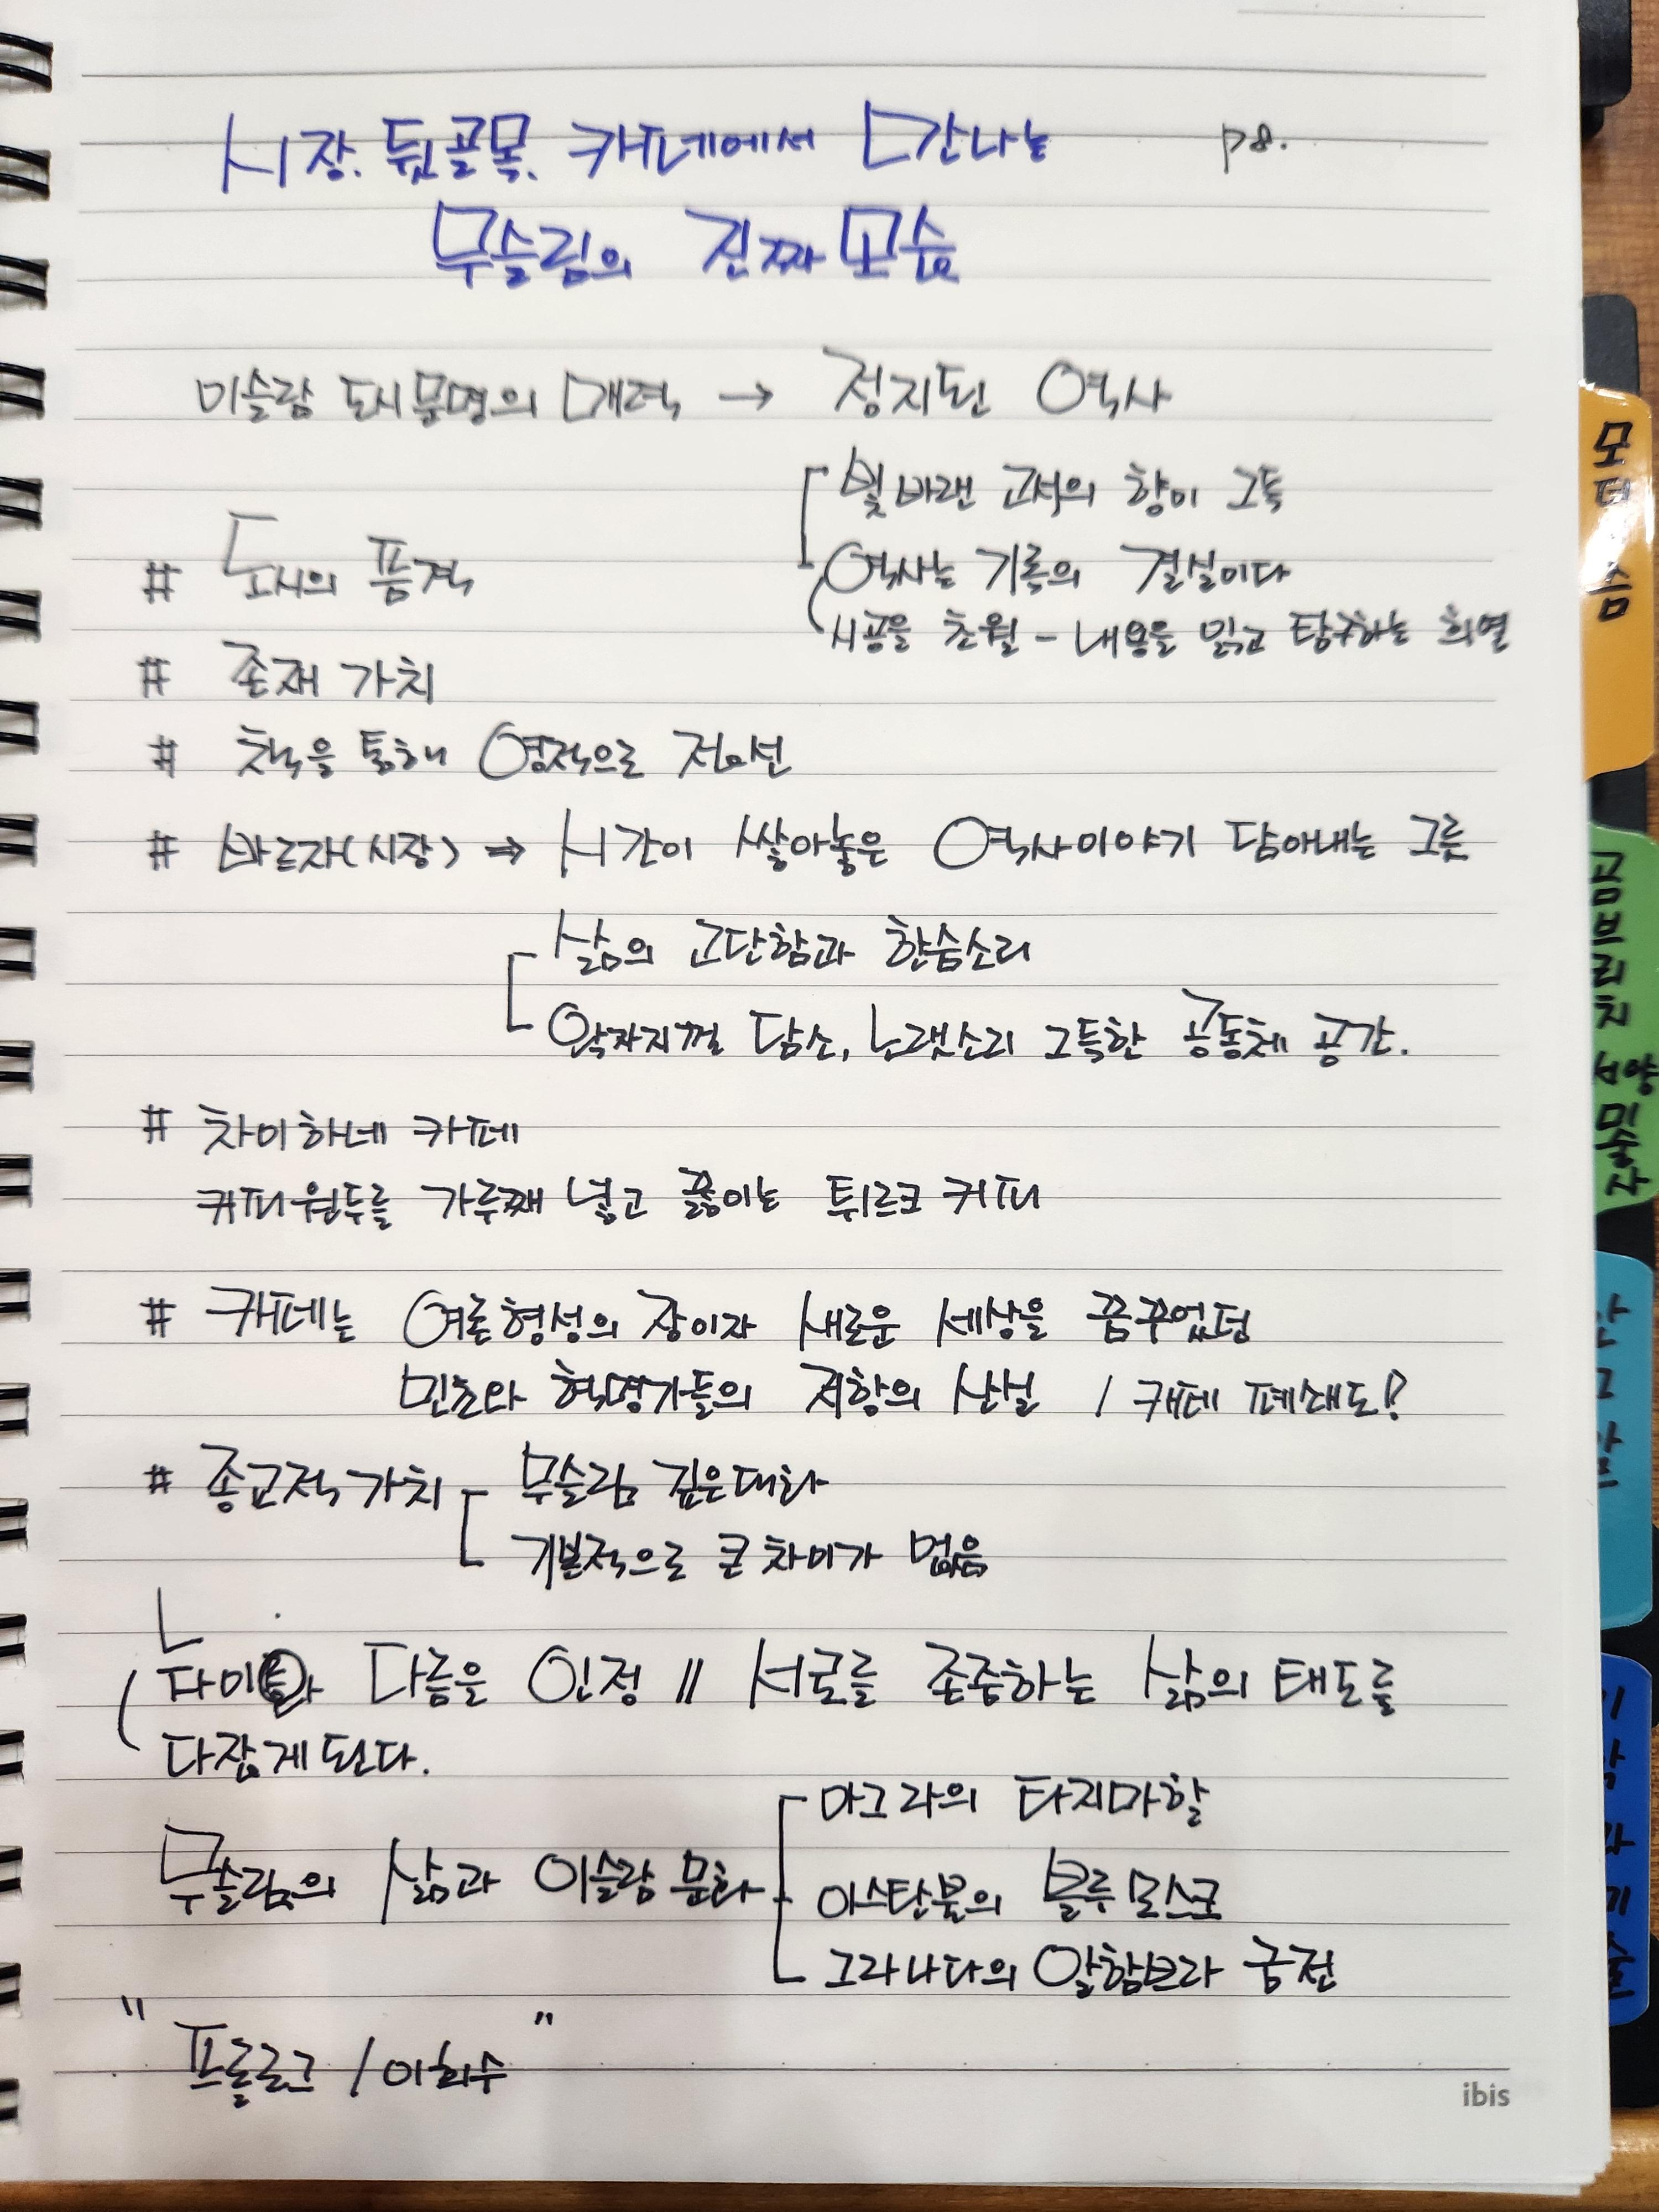 시장, 뒷골목, 카페에서 만나는 P8.
무슬림의 진짜 모습
이슬람 도시문명의 매력 → 정지된 역사
빛바랜 고서의 향이 그득
# 도시의 품격
역사는 기록의 결실이다
시공을 초월 - 내용을 읽고 탐구하는 희열
# 존재 가치
# 책을 통해 영적으로 전이선
# 바르자(시장) ⇒ 시간이 쌓아놓은 역사이야기 담아내는 그릇
삶의 고단함과 한숨소리
왁자지껄 담소, 노랫소리 그득한 공동체 공간.
# 차이하네 카페
커피원두를 가루째 넣고 끓이는 튀르크 커피
# 카페는 여론형성의 장이자 새로운 세상을 꿈꾸었던
민초와 혁명가들의 저항의 산실 / 카페 폐쇄도!?
# 종교적 가치 무슬림 깊은대화
기본적으로 큰 차이가 없음
다름을 인정 // 서로를 존중하는 삶의 태도를
다잡게 된다.
아그라의 타지마할
무슬림의 삶과 이슬람 문화
이스탄불의 블루 모스크
그라나다의 알함브라 궁전
"프롤로그 / 이희수"
ibis
모터 심
곰브리치 서양 미술사